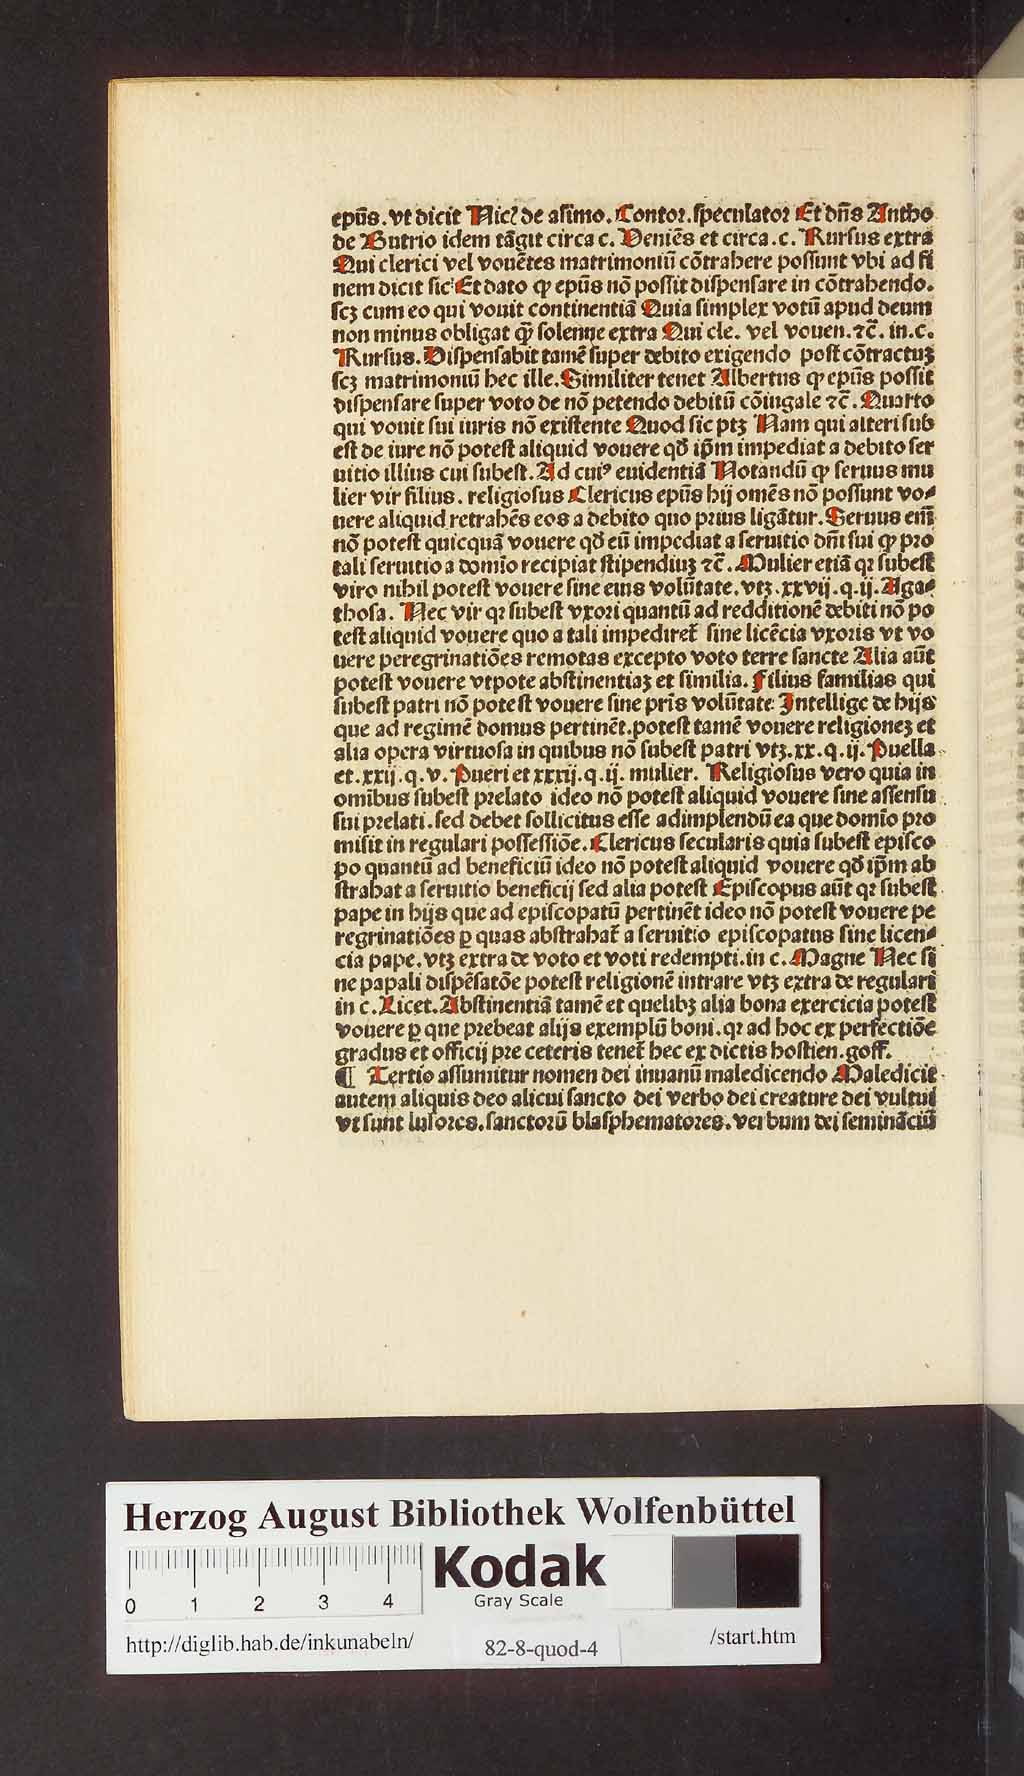 epūs. vt dicit Nicꝰ de asimo. Contor. speculator Et dn̄s Antho
de Butrio idem tāgit circa c. Veniēs et circa .c. Rursus extra
Qui clerici vel vouētes matrimoniū cōtrahere possunt vbi ad fi
nem dicit sic Et dato ꝙ epūs nō possit dispensare in cōtrahendo.
scꝫ cum eo qui vouit continentiā Quia simplex votū apud deum
non minus obligat q̄ solenne extra Qui cle. vel vouen. ⁊c̄. in .c.
Rursus. Dispensabit tamē super debito exigendo post cōtractuꝫ
scꝫ matrimoniū hec ille. Similiter tenet Albertus ꝙ epūs possit
dispensare super voto de nō petendo debitū cōiugale ⁊c̄. Quarto
qui vouit sui iuris nō existente Quod sic ptꝫ Nam qui alteri sub
est de iure nō potest aliquid vouere qđ ip̄m impediat a debito ser
uitio illius cui subest. Ad cuiꝰ euidentiā Notandū ꝙ seruus mu
lier vir filius. religiosus Clericus epūs hij omēs nō possunt vo⸗
uere aliquid retrahēs eos a debito quo prius ligātur. Seruus em̄
nō potest quicquā vouere qđ eū impediat a seruitio dn̄i sui ꝙ pro
tali seruitio a domīo recipiat stipendiuꝫ ⁊c̄. Mulier etiā qꝛ subest
viro nihil potest vouere sine eius volūtate. vtꝫ .xxvij. q. ij. Aga⸗
thosa. Nec vir qꝛ subest vxori quantū ad redditionē debiti nō po
test aliquid vouere quo a tali impediret̄ sine licēcia vxoris vt vo
uere peregrinatiōes remotas excepto voto terre sancte Alia aūt
potest vouere vtpote abstinentiaꝫ et similia. Filius familias qui
subest patri nō potest vouere sine pr̄is volūtate Intellige de hijs
que ad regimē domus pertinēt. potest tamē vouere religioneꝫ et
alia opera virtuosa in quibus nō subest patri vtꝫ .xx. q. ij. Puella
et .xxij. q. v. Pueri et xxxij. q. ij. mulier. Religiosus vero quia in
omībus subest prelato ideo nō potest aliquid vouere sine assensu
sui prelati. sed debet sollicitus esse adimplendū ea que domīo pro
misit in regulari possessiōe. Clericus secularis quia subest episco
po quantū ad beneficiū ideo nō potest aliquid vouere qđ ip̄m ab
strahat a seruitio beneficij sed alia potest Episcopus aūt qꝛ subest
pape in hijs que ad episcopatū pertinēt ideo nō potest vouere pe
regrinatiōes ꝑ quas abstrahat̄ a seruitio episcopatus sine licen⸗
cia pape. vtꝫ extra de voto et voti redempti. in c. Magne Nec si
ne papali dispēsatōe potest religionē intrare vtꝫ extra de regulari
in c. Licet. Abstinentiā tamē et quelibꝫ alia bona exercicia potest
vouere ꝑ que prebeat alijs exemplū boni. qꝛ ad hoc ex perfectiōe
gradus et officij pre ceteris tenet̄ hec ex dictis hostien. goff.
¶ Tertio assumitur nomen dei inuanū maledicendo Maledicit
autem aliquis deo alicui sancto dei verbo dei creature dei vultui
vt sunt lusores. sanctorū blasphematores. verbum dei seminăciū
Herzog August Bibliothek Wolfenbüttel
0 1 2 3 4
Kodak
Gray Scale
http://diglib.hab.de/inkunabeln/
82-8-quod-4
/start.htm